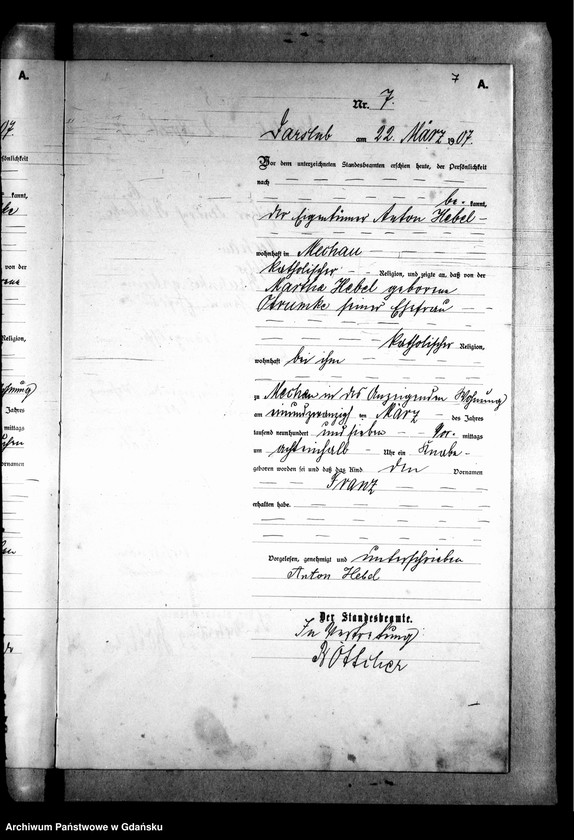 A.
7
A.
Nr. 7.
Darslub am 22. März 1907.
Vor dem unterzeichneten Standesbeamten erschien heute, der Persönlichkeit
nach
be- kannt,
der Eigentümer Anton Hebel
wohnhaft in Mechau
katholischer Religion, und zeigte an, daß von der
Martha Hebel geborene
seiner Ehefrau
katholischer Religion,
wohnhaft bei ihm
zu Mechau in des Anzeigenden Wohnung
am einundzwanzigsten März des Jahres
tausend neunhundert und sieben Vor- mittags
um achteinhalb Uhr ein Knabe
geboren worden sei und daß das Kind den Vornamen
Franz
erhalten habe.
Vorgelesen, genehmigt und unterschrieben
Anton Hebel
Der Standesbeamte.
In Vertretung:
Böttcher
07.
sönlichkeit
kannt,
von der
Religion,
Jahres
mittags
ornamen
Archiwum Państwowe w Gdańsku